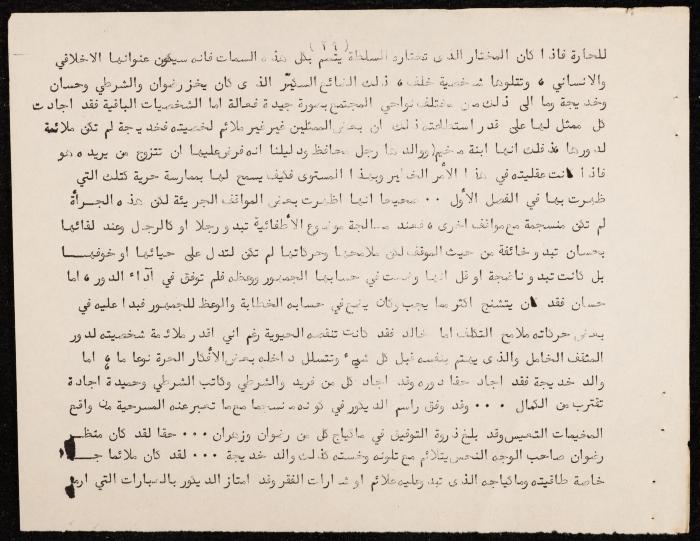 (٢٩)
للحارة فاذا كان المختار الذى تختاره السلطة يتسم بكل هذه السمات فانه سيكون عنوانها الاخلاقي
والانساني ، وتتلوها شخصية خلف ، ذلك الضائع السكير الذى كان يخز رضوان والشرطي وحسان
وخديجة وما الى ذلك من مختلف نواحي المجتمع بصورة جيدة فعالة اما الشخصيات الباقية فقد اجادت
كل ممثل لها على قدر استطاعته ذلك ان بعض الممثلين غير غير ملائم لخصيته فخديجة لم تكن ملائمة
لدورها فذلت انها ابنة مخيم ووالدها رجل محافظ ودليلنا انه فرض عليها ان تتزوج من يريده هو
فاذا كانت عقليته في هذا الأمر الخطير وبهذا المستوى فكيف يسمح لها بممارسة حرية كتلك التي
ظهرت بها في الفصل الأول ٠٠ صحيحا انها اظهرت بعض المواقف الجريئة لكن هذه الجرأة
لم تكن منسجمة مع مواقف اخرى ، فعند معالجة موضوع الأطفائية تبدو رجلا او كالرجل وعند لقائها
بحسان تبدو خائفة من حيث الموقف لكن ملامحها وحركاتها لم تكن لتدل على حيائها او خوفها
بل كانت تبدو ناضجة او قل انها وضعت في حسابها الجمهور ووعظه فلم توفق في آداء الدور ، اما
حسان فقد كان يتشنج اكثر مما يجب وكان يضع في حسابه الخطابة والوعظ للجمهور فبدا عليه في
بعض حركاته ملامح التكلف اما خالد فقد كانت تنقصه الحيوية رغم اني اقدر ملائمة شخصيته لدور
المثقف الخامل والذى يهتم بنفسه قبل كل شيء وتتسلل داخله بعض الأفكار الحرة نوعا ما ، اما
والد خديجة فقد اجاد حقا دوره وقد اجاد كل من فريد والشرطي وكاتب الشرطي وحميدة اجادة
تقترب من الكمال ٠٠٠ وقد وفق راسم الديكور في كونه منسجما مع ما تعبر عنه المسرحية من واقع
المخيمات التعيس وقد بلغ ذروة التوفيق في ماكياج كل من رضوان وزهران ٠٠٠ حقا لقد كان منظر
رضوان صاحب الوجه النحس يتلائم مع تلونه وخسته كذلك والد خديجة ٠٠٠ لقد كان ملائما جدا
خاصة طاقيته وماكياجه الذى تبدو عليه علائم او شارات الفقر وقد امتاز الديكور بالعبارات التي